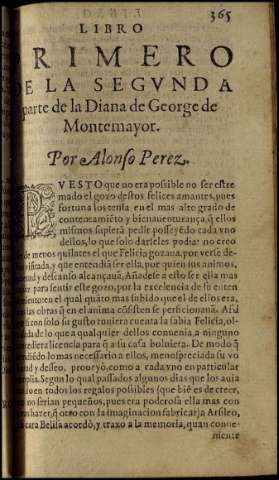 365
LIBRO
PRIMERO
DE LA SEGVNDA
parte de la Diana de George de
Montemayor.
Por Alonso Perez.
PVESTO que no era possible no ser estre
mado el gozo destos felices amantes, pues
fortuna los tenia en el mas alto grado de
contentamiẽto y bienauenturança, q̃ ellos
mismos supierã pedir posseyẽdo cada vno
dellos, lo que solo darseles podia: no creo
de menos quilates el que Felicia gozaua, por verse
y que entendia ser ella, por quien sus animos,
y descanso alcançauã. Añadese a esto ser ella mas
para sentir este gozo, por la excelencia de su enten
el qual quãto mas subido que el de ellos era,
las obras q̃ en el anima cõsisten se perficionauã. Assi
solo su gusto tuuiera cuenta la sabia Felicia,
de lo que a qualquier dellos conuenia, a ninguno
licencia para q̃ a su casa boluiera. De modo q̃
lo mas necessario a ellos, menospreciada su vo
y desseo, proueyò, como a cada vno en particular
Segun lo qual passados algunos dias que los auia
en todos los regalos possibles (que biẽ es de creer,
no serian pequeños, pues era poderosa ella mas con
hazer, q̃ otro con la imaginacion fabricar) a Arsileo,
cara Belisa acordò, y traxo a la memoria, quan conue-
niente